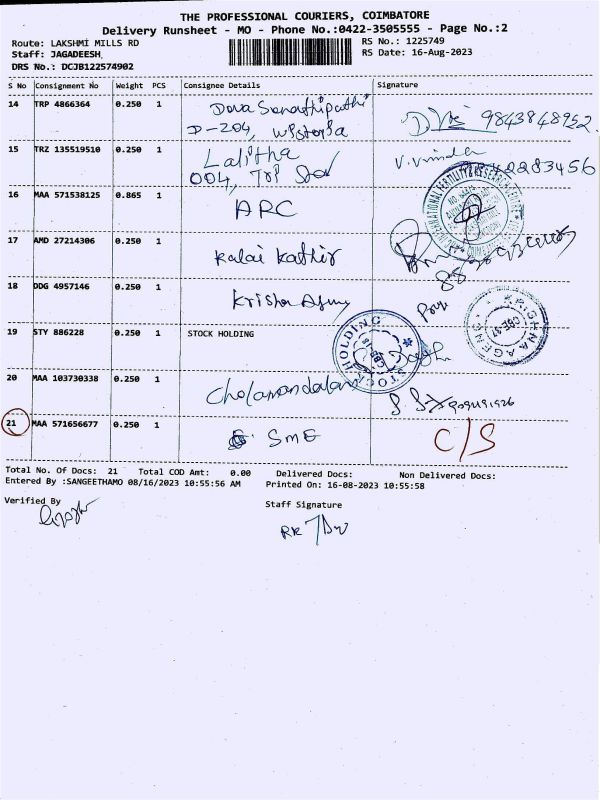 THE PROFESSIONAL COURIERS, COIMBATORE
Delivery Runsheet - MO - Phone No.:0422-3505555 - Page No.:2
Route: LAKSHMI MILLS RD
RS No.: 1225749
Staff: JAGADEESH,
RS Date: 16-Aug-2023
DRS No.: DCJB122574902
S No Consignment No Weight PCS Consignee Details Signature
14 TRP 4866364 0.250 1
D-204, 9843848952
15 TRZ 135519510 0.250 1 Lalitha
004,
16 MAA 571538125 0.865 1 ARC
17 AMD 27214306 0.250 1 Kalai Kathir
18 DDG 4957146 0.250 1 Krishna
KRISHNA AGENC
19 STY 886228 0.250 1 STOCK HOLDING
STOCK HOLDING
20 MAA 103730338 0.250 1 Cholamandalam
21 MAA 571656677 0.250 1 SME C/S
Total No. Of Docs: 21 Total COD Amt: 0.00 Delivered Docs: Non Delivered Docs:
Entered By :SANGEETHAMO 08/16/2023 10:55:56 AM Printed On: 16-08-2023 10:55:58
Verified By
Staff Signature